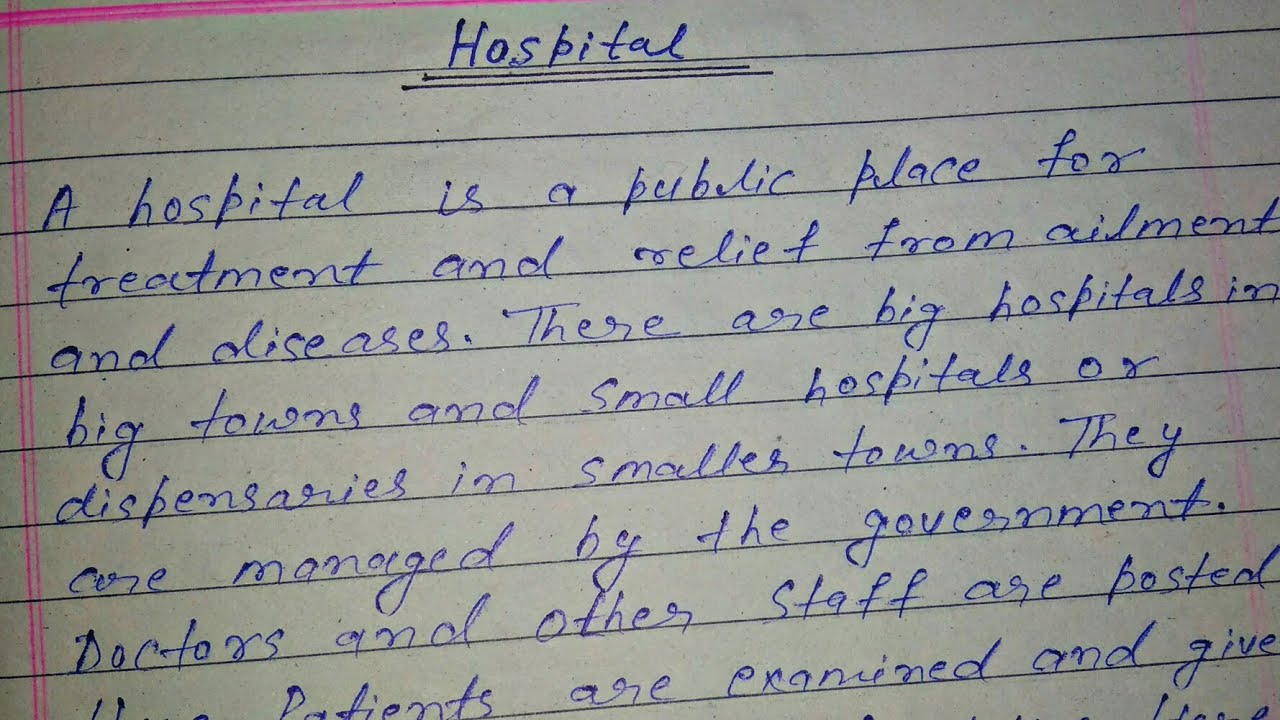 Hospital
A hospital is a public place for
treatment and relief from ailment
and diseases. There are big hospitals in
big towns and small hospitals or
dispensaries in smaller towns. They
are managed by the government.
Doctors and other staff are posted
Patients are examined and give